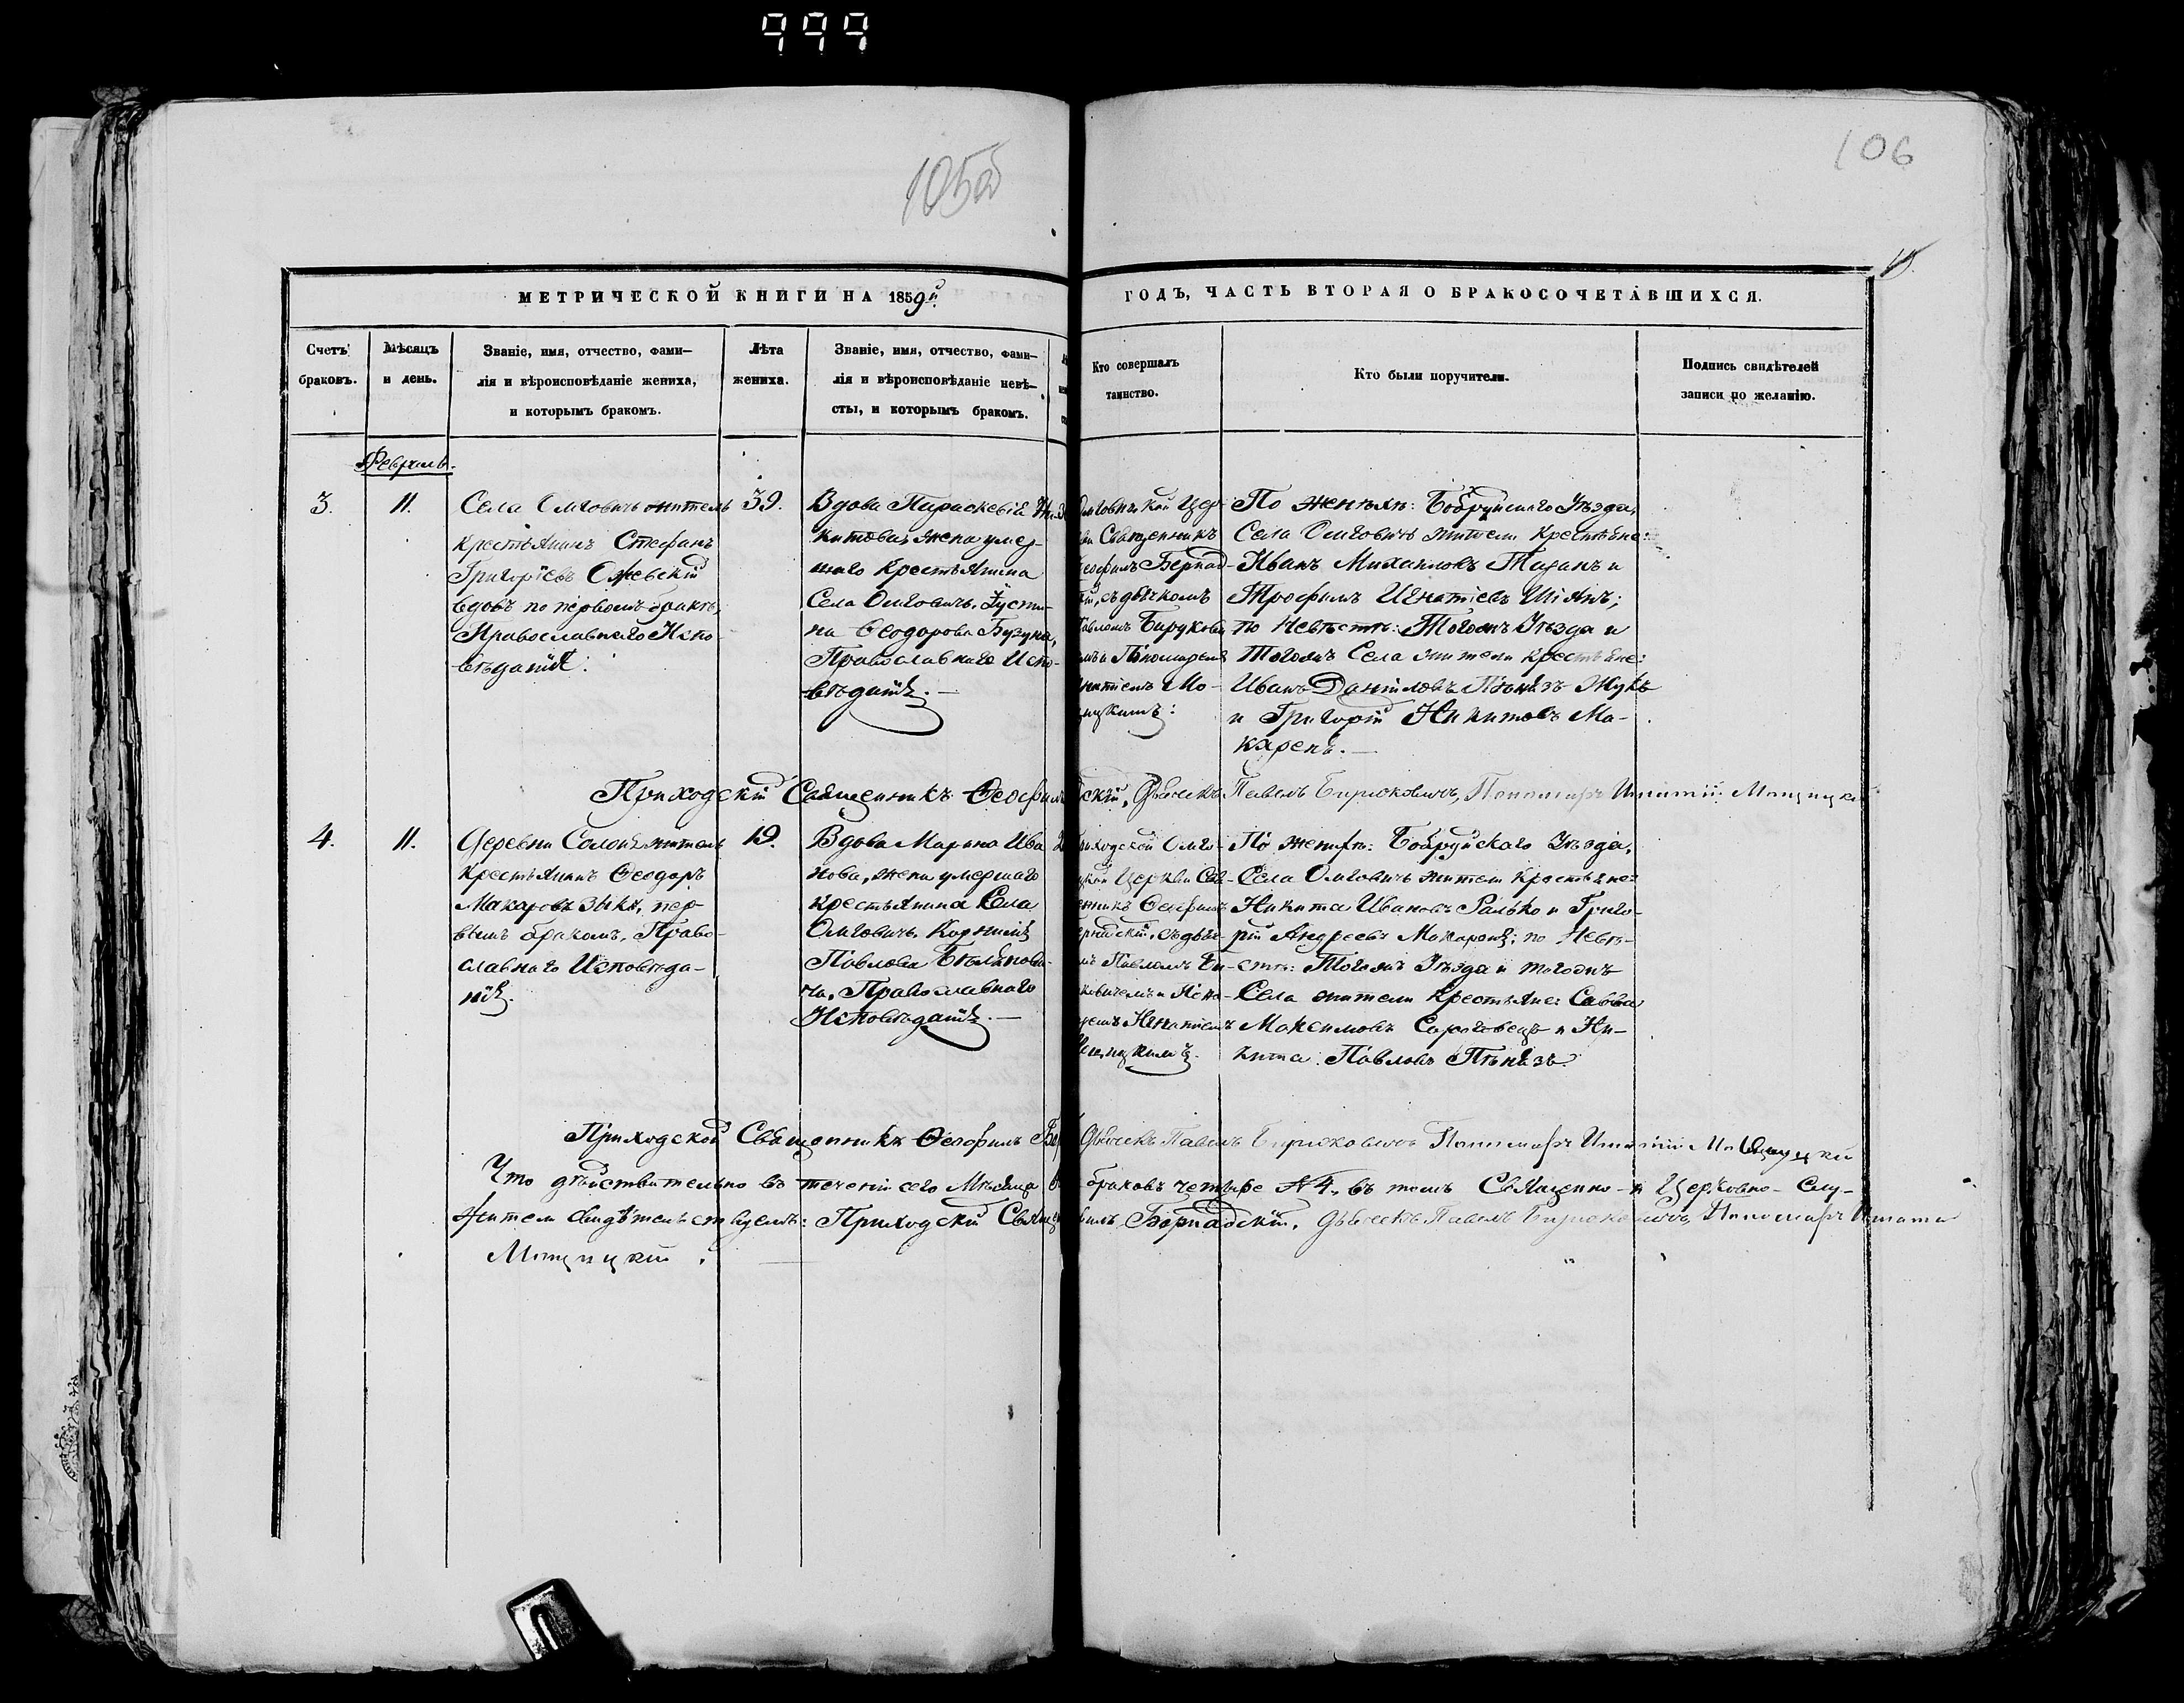 999
105об
106
МЕТРИЧЕСКОЙ КНИГИ НА 1859й
ГОДЪ, ЧАСТЬ ВТОРАЯ О БРАКОСОЧЕТАВШИХСЯ.
Счетъ
браковъ.
Мѣсяцъ
и день.
Званіе, имя, отчество, фами-
лія и вѣроисповѣданіе жениха,
и которымъ бракомъ.
Лѣта
жениха.
Званіе, имя, отчество, фами-
лія и вѣроисповѣданіе невѣ-
сты, и которымъ бракомъ.
Кто совершалъ
таинство.
Кто были поручители.
Подпись свидѣтелей
записи по желанію.
Февраль.
3.
11.
Села Омговичъ житель
крестьянинъ Стефанъ
Григоріевъ Ожевскій
вдовъ по первомъ бракѣ,
Православнаго Испо-
вѣданія.
39.
Вдова Параскевія Ни-
китова, жена умер-
шаго крестьянина
Села Омговичъ, Іусти-
на Ѳеодорова Бузука,
Православнаго Испо-
вѣданія.
Омговицкой Цер-
Священникъ
Бернад-
съ дьячкомъ
Бирукови
и Пономаремъ
Игнатіемъ Мо-
По женихѣ: Бобруйскаго Уѣзда,
Села Омговичъ жители крестьяне:
Иванъ Михайловъ Таранъ и
Трофимъ Игнатіевъ Шіянъ;
по Невѣстѣ: Тогожъ Уѣзда и
Тогожъ Села жители крестьяне:
Иванъ Даніиловъ Пѣнязь Жукъ
и Григорій Никитовъ Ма-
карень.
Приходскій Священникъ Ѳеофилъ
скій, Дьячекъ Павелъ Бирюковичъ, Пономарь Игнатій Мощицкій
4.
11.
Деревни Солонъ житель
крестьянинъ Ѳеодоръ
Макаровъ Зыкъ, пер-
вымъ бракомъ, Право-
славнаго Исповѣда-
нія.
19.
Вдова Марьяна Ива
нова, жена умершаго
крестьянина Села
Омговичъ, Корнилія
Павлова
ча, Православнаго
Исповѣданія.
Приходской Омго-
Церкви Свя-
Ѳеофилъ
съ дьяч-
Павломъ Би-
и Поно-
Игнатіемъ
По женихѣ: Бобруйскаго Уѣзда,
Села Омговичъ жители крестьяне:
Никита Ивановъ Ралько и Григо-
рій Андреевъ Макареня; по Невѣ-
стѣ: Тогожъ Уѣзда и тогожъ
Села жители крестьяне: Савва
Максимовъ и Ни-
кита Павловъ Пѣнязь.
Приходской Священникъ Ѳеофилъ Бер
Дьячекъ Павелъ Бирюковичъ Пономарь Игнатій Мощицкій
Что дѣйствительно въ теченіи сего Мѣсяца
браковъ четыре № 4., въ томъ Священно- и Церковно- Слу-
жители свидѣтельствуемъ: Приходскій Священ
филъ Бернадскій, Дьячекъ Павелъ Бирюковичъ, Пономарь Игнатій
Мощицкій